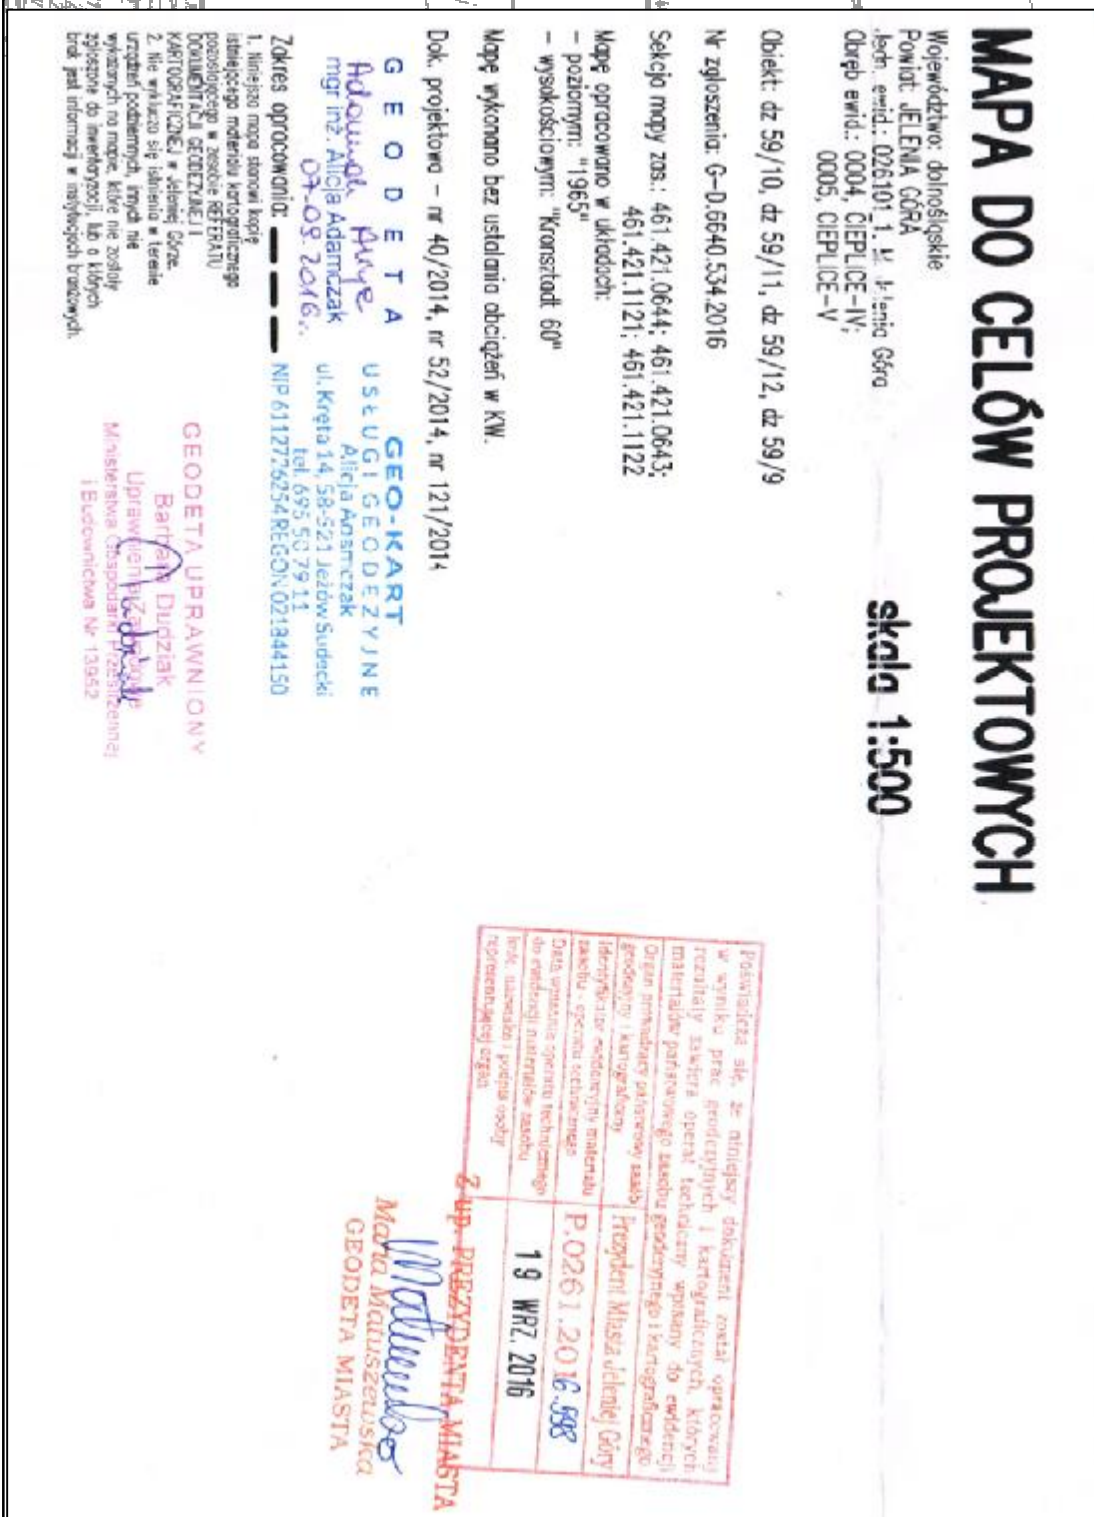 MAPA DO CELÓW PROJEKTOWYCH
skala 1:500
Województwo: dolnośląskie
Powiat: JELENIA GÓRA
Jedn. ewid.: 026101_1. M. Jelenia Góra
Obręb ewid.: 0004, CIEPLICE-IV;
0005, CIEPLICE-V
Obiekt: dz 59/10, dz 59/11, dz 59/12, dz 59/9
Nr zgłoszenia: G-D.6640.534.2016
Sekcja mapy zas.: 461.421.0644; 461.421.0643;
461.421.1121; 461.421.1122
Mapę opracowano w układach:
- poziomym: "1965"
- wysokościowym: "Kronsztadt 60"
Mapę wykonano bez ustalania obciążeń w KW.
Dok. projektowa - nr 40/2014, nr 52/2014, nr 121/2014
GEODETA
mgr inż. Alicja Adamczak
07.09.2016r.
GEO-KART
USŁUGI GEODEZYJNE
Alicja Adamczak
ul. Kręta 14, 58-521 Jeżów Sudecki
tel. 695 50 79 11
NIP 6112726254 REGON 021844150
Zakres opracowania:
1. Niniejsza mapa stanowi kopię
istniejącego materiału kartograficznego
pozostającego w zasobie REFERATU
DOKUMENTACJI GEODEZYJNEJ I
KARTOGRAFICZNEJ w Jeleniej Górze.
2. Nie wyklucza się istnienia w terenie
urządzeń podziemnych, innych nie
wykazanych na mapie, które nie zostały
zgłoszone do inwentaryzacji, lub o których
brak jest informacji w instytucjach branżowych.
GEODETA UPRAWNIONY
Barbara Dudziak
Uprawnienia Zawodowe
Ministerstwa Gospodarki Przestrzennej
i Budownictwa Nr 13952
Poświadcza się, że niniejszy dokument został opracowany
w wyniku prac geodezyjnych i kartograficznych, których
rezultaty zawiera operat techniczny wpisany do ewidencji
materiałów państwowego zasobu geodezyjnego i kartograficznego
Organ prowadzący państwowy zasób
geodezyjny i kartograficzny
Prezydent Miasta Jeleniej Góry
Identyfikator ewidencyjny materiału
zasobu - operatu technicznego
P.0261.2016.598
Data wpisania operatu technicznego
do ewidencji materiałów zasobu
19 WRZ. 2016
Imię, nazwisko i podpis osoby
reprezentującej organ
Z up. PREZYDENTA MIASTA
Maria Matuszewska
GEODETA MIASTA